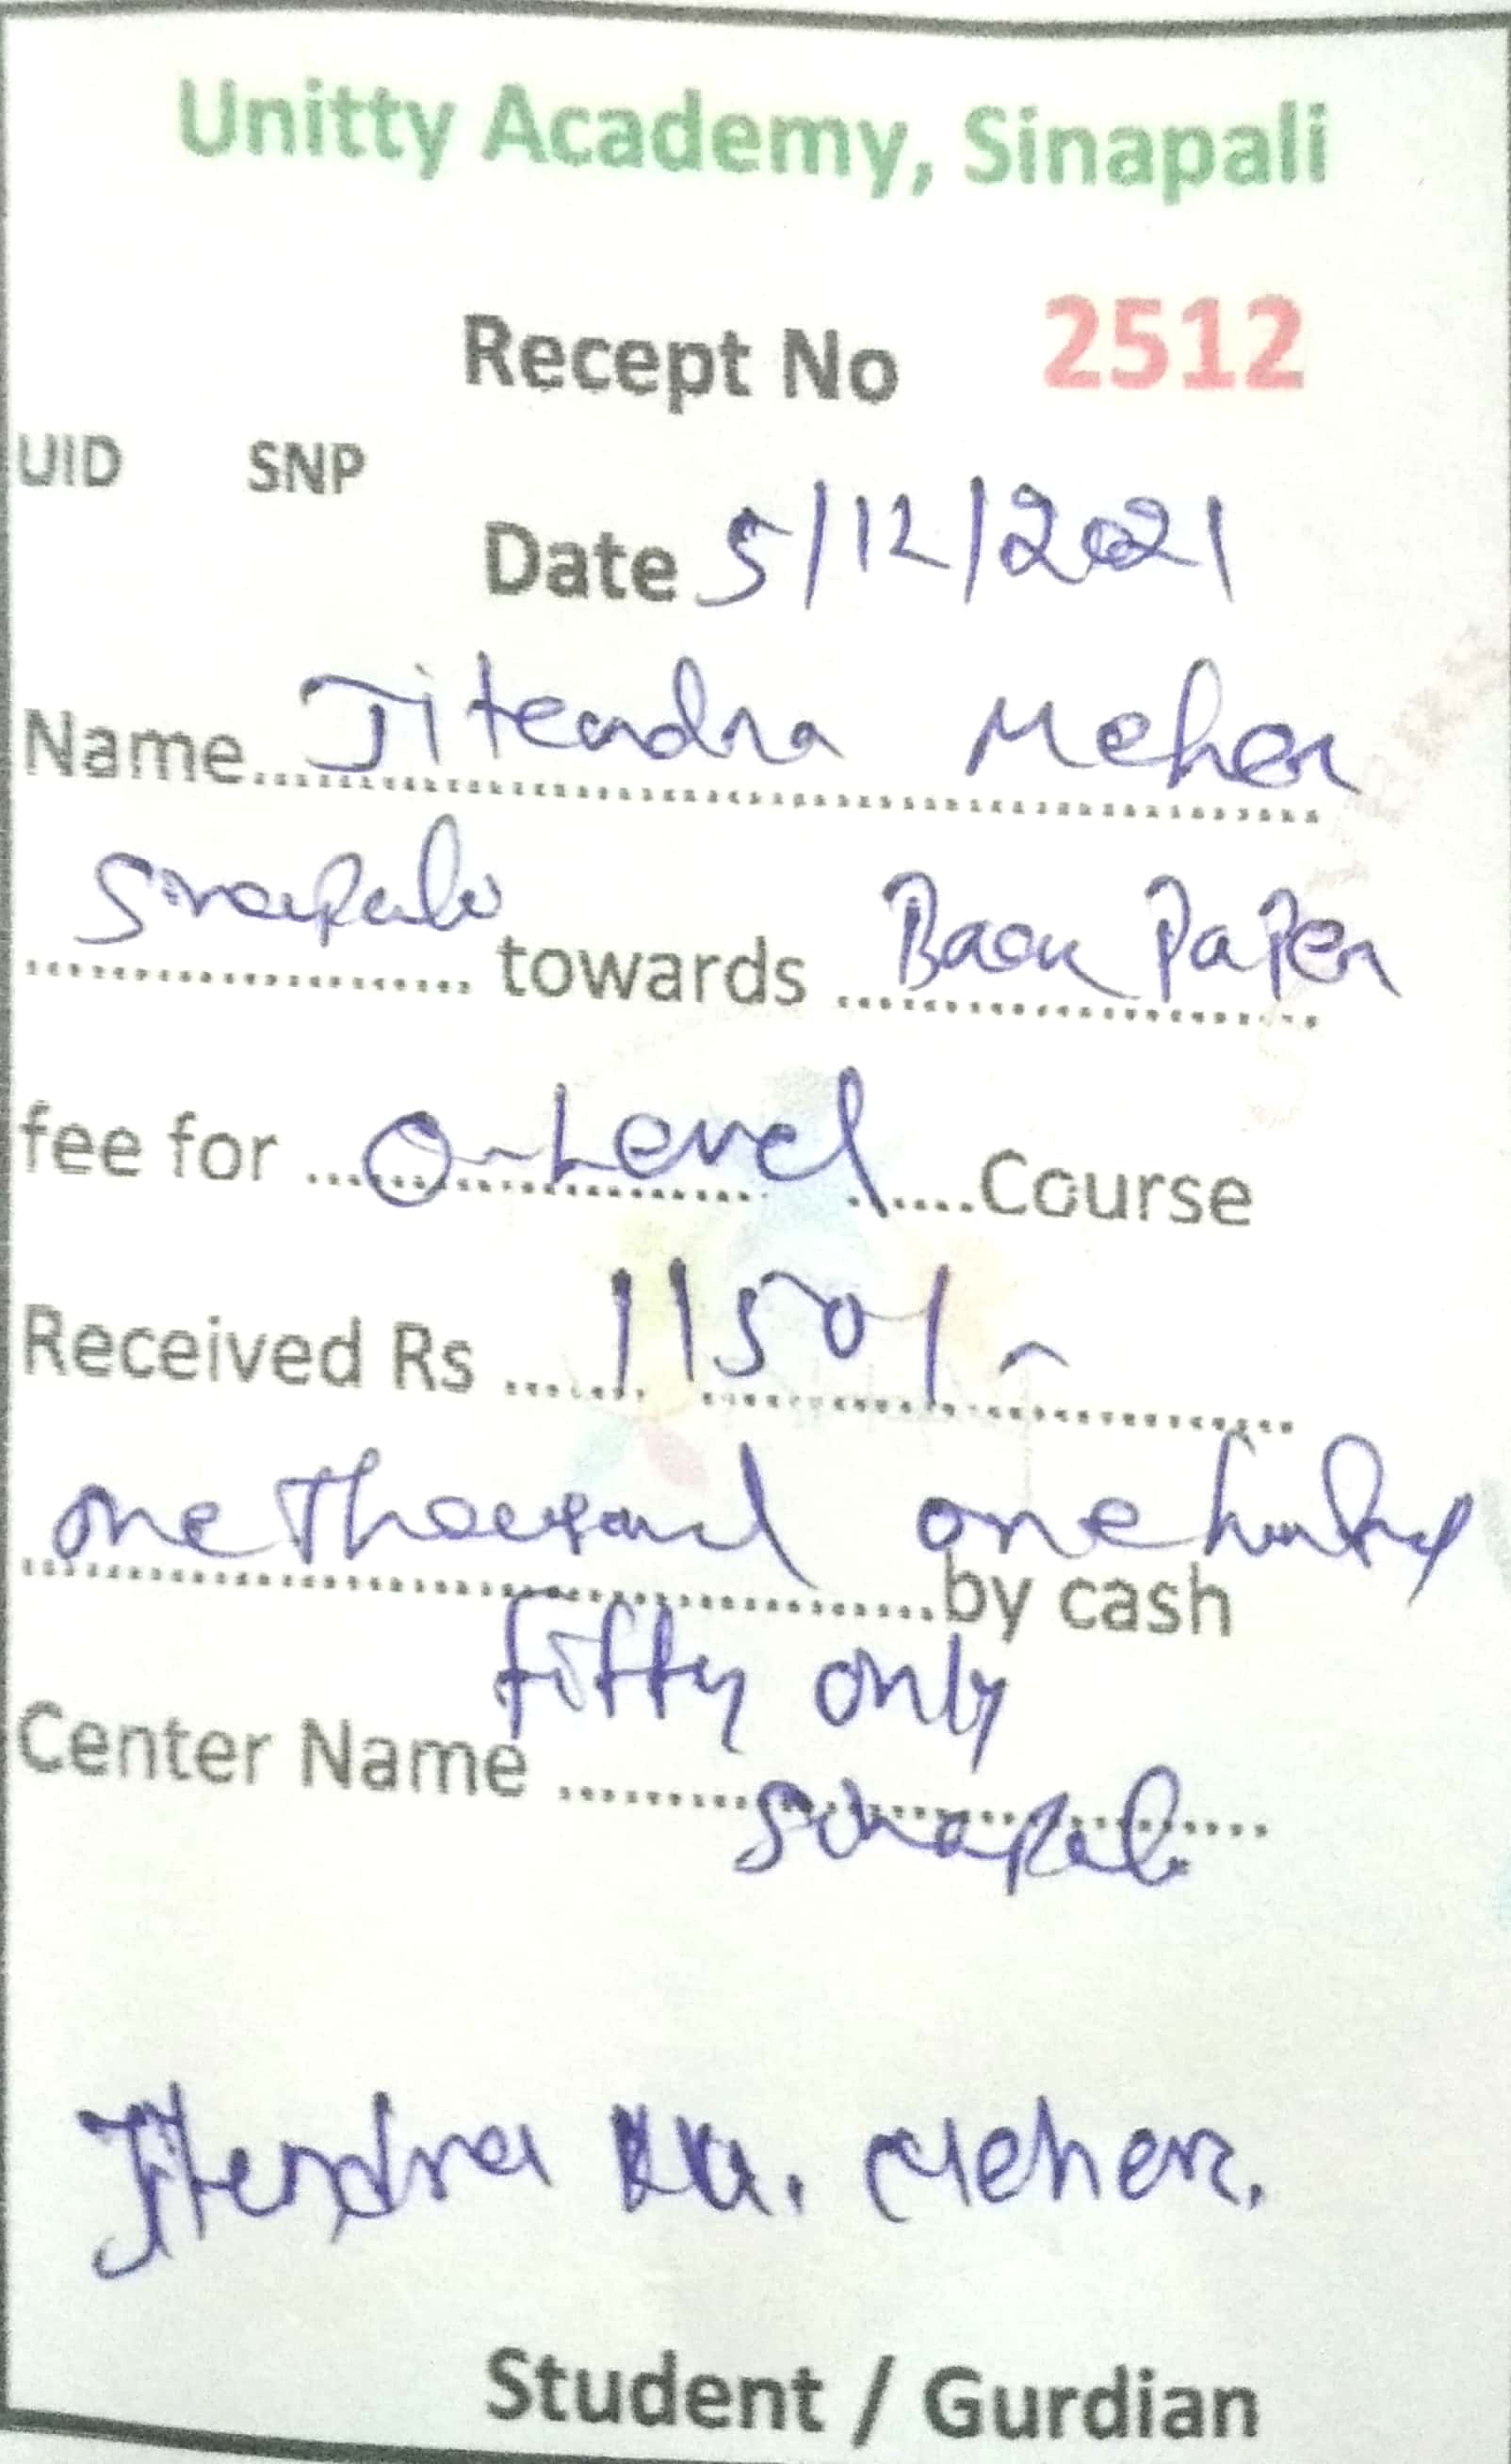 Unitty Academy, Sinapali
Recept No 2512
UID SNP
Date 5/12/2021
Name Jitendra Meher
Sinapali towards Back Paper
fee for O-Level Course
Received Rs 1150/-
one Thousand one hundred
by cash
fifty only
Center Name
Sinapali
Jitendra Ku. Meher.
Student / Gurdian